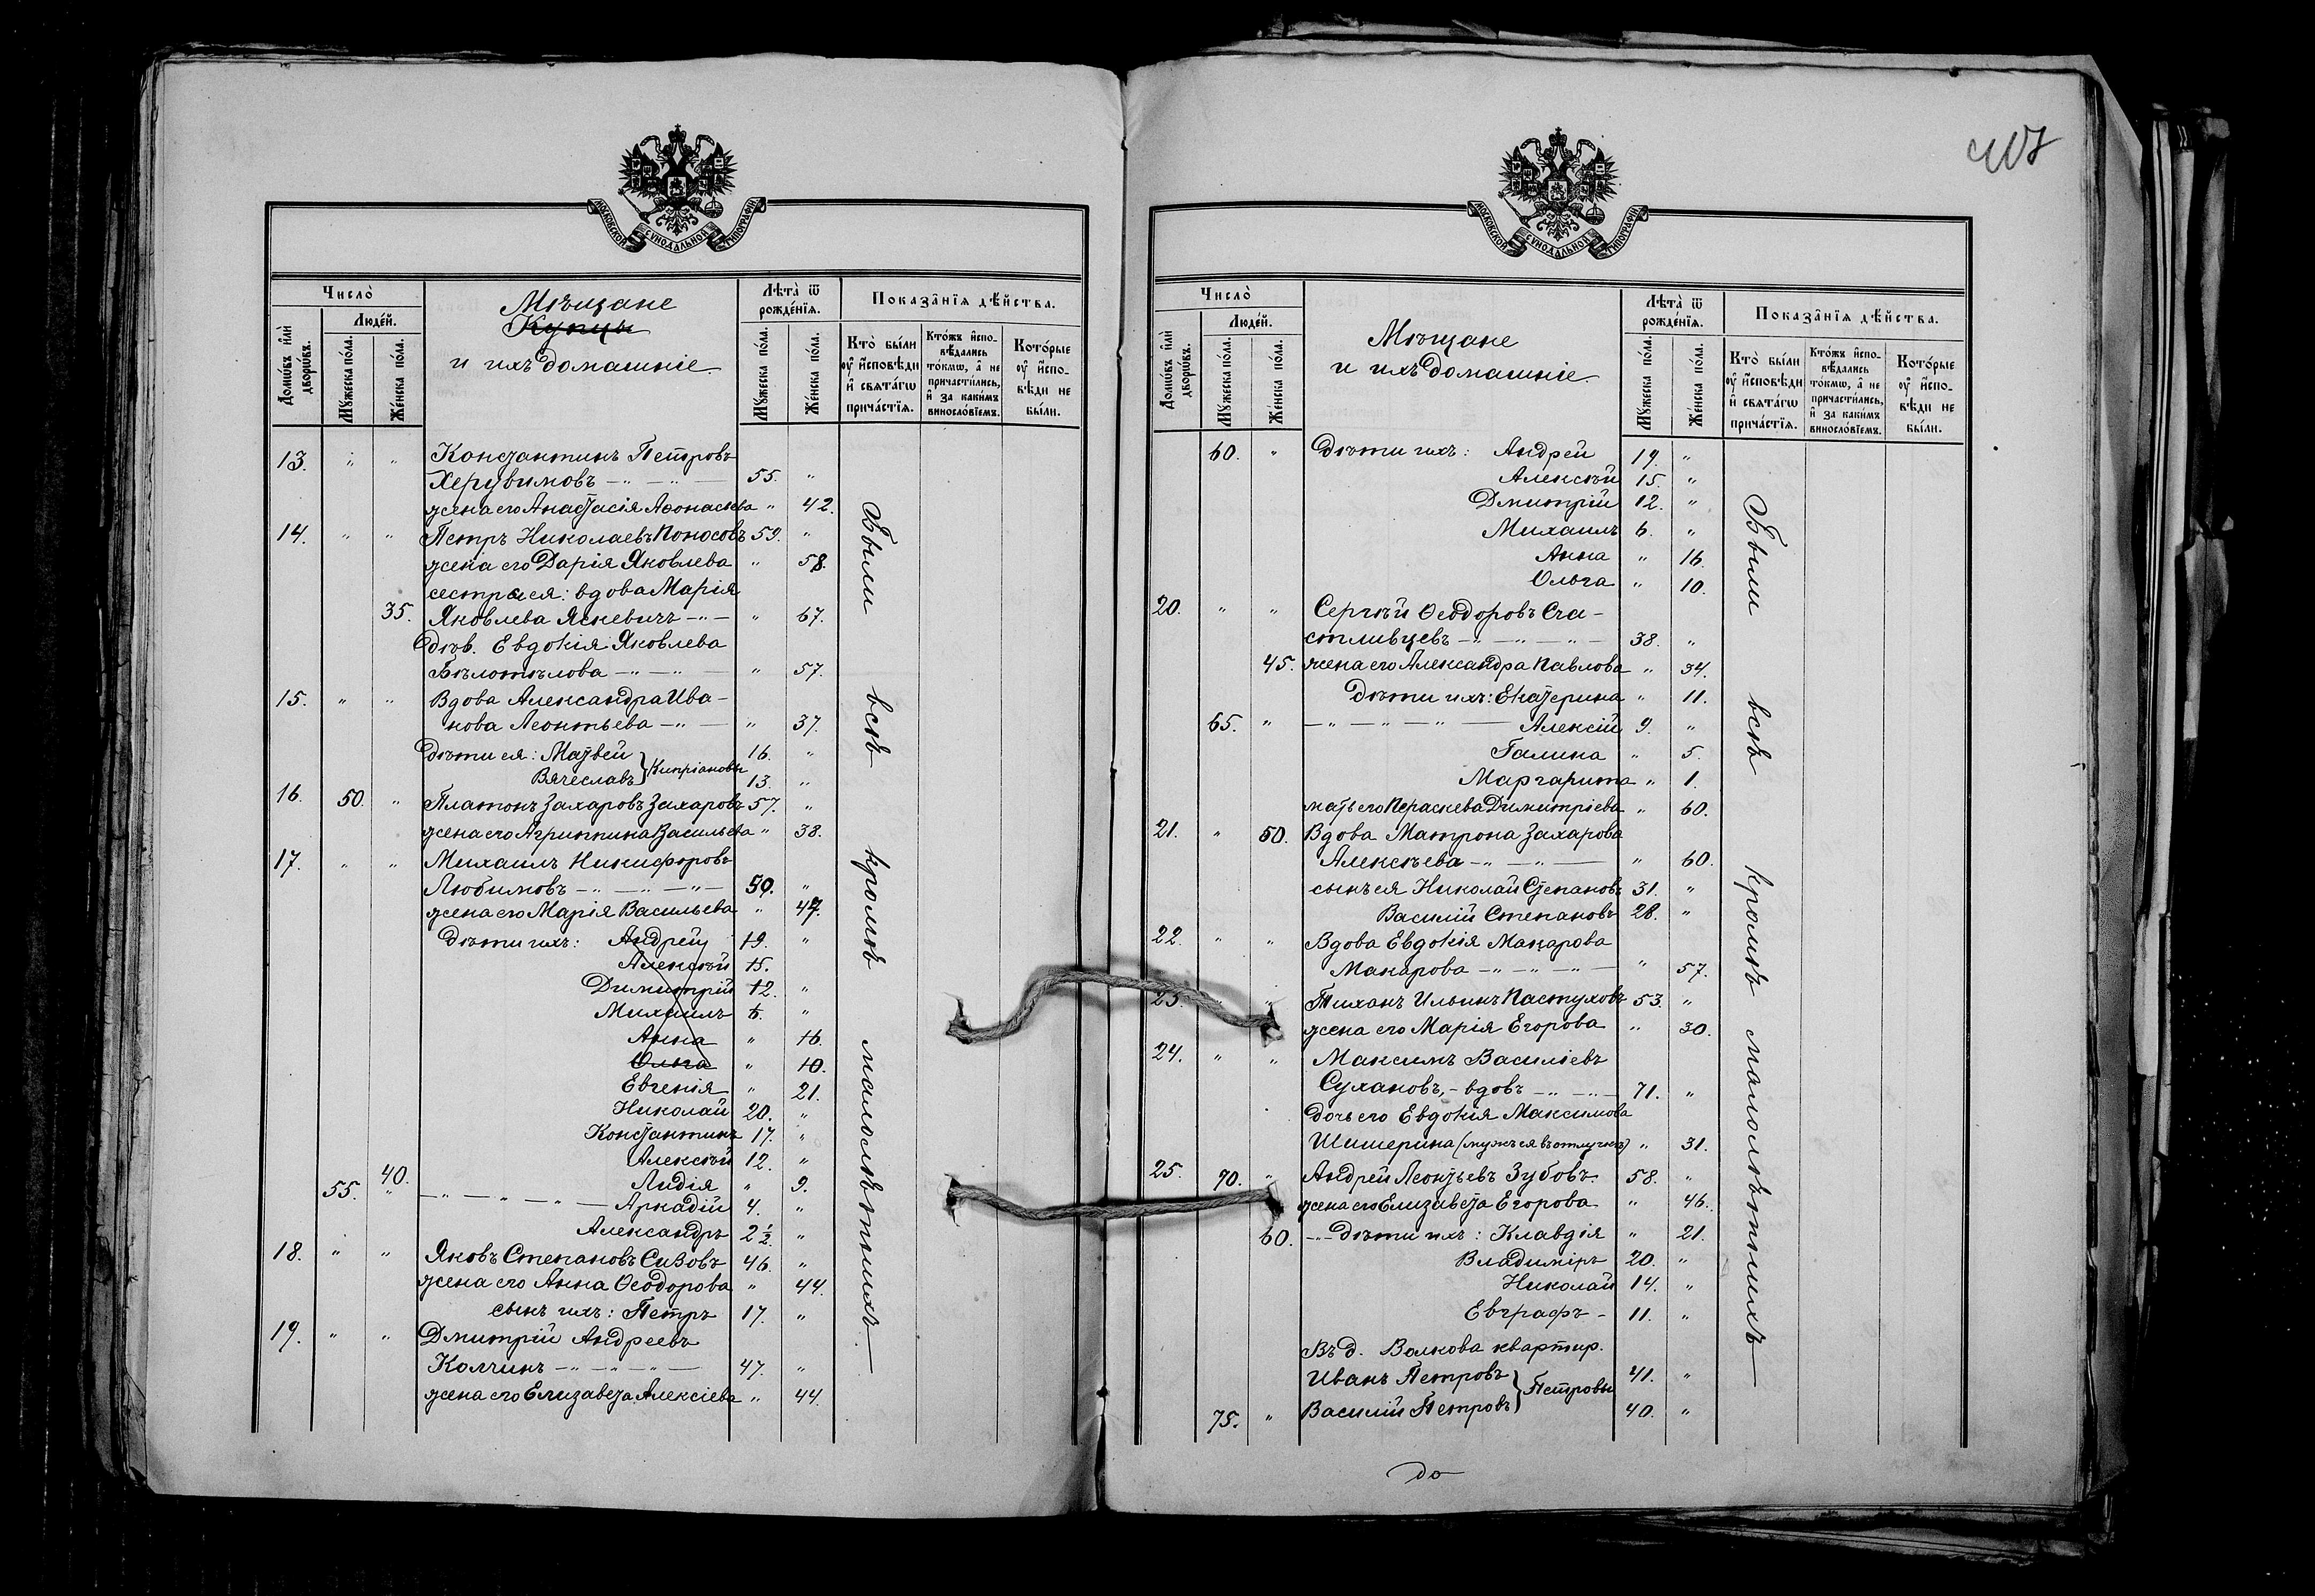 407
МОСКОВСКОЙ СѴНОДАЛЬНОЙ ТИПОГРАФІИ
Число̀
Домѡ́въ и҆лѝ дворѡ́въ.
Люде́й.
Мꙋ́жеска по́ла.
Же́нска по́ла.
Мѣщане
Купцы
и ихъ домашніе
Лѣта̀ ѿ рожде́нїѧ.
Мꙋ́жеска по́ла.
Же́нска по́ла.
Показа̑нїѧ дѣ́йства.
Кто̀ бы́ли ᲂу҆ и҆сповѣ́ди и҆ свѧта́гѡ прича́стїѧ.
Кто́жъ и҆спо-
вѣ́дались
то́кмѡ, а҆ не
причасти́лись,
и҆ за каки́мъ
винослові́емъ.
Кото́рые
ᲂу҆ и҆спо-
вѣ́ди не
бы́ли.
13. " " Константинъ Петровъ
Херувимовъ -"- -"- 55. "
жена его Анастасія Аѳонасіева " 42.
14. " " Петръ Николаевъ Поносовъ 59. "
жена его Дарія Яковлева " 58.
сестра ея: вдова Марія
35. Яковлева Яскевичъ -"- " 67.
Дѣв. Евдокія Яковлева
Бѣлотѣлова -"- -"- " 57.
15. " " Вдова Александра Ива-
нова Леонтьева -"- " 37.
Дѣти ея: Матвей 16. "
Вячеславъ } Кипріановы 13. "
16. 50. " Платонъ Захаровъ Захаровъ 57. "
жена его Агриппина Васильева " 38.
17. " " Михаилъ Никифоровъ
Любимовъ -"- -"- -"- 50. "
жена его Марія Васильева " 47.
Дѣти ихъ: Андрей 19. "
Алексѣй 15.
Димитрій 12. "
Михаилъ 6. "
Анна " 16.
Ольга " 10.
Евгенія " 21.
Николай 20. "
Константинъ 17. "
Алексѣй 12. "
40. Лидія " 9.
55. " -"- -"- -"- Аркадій 4. "
Александръ 2 ½. "
18. " " Яковъ Степановъ Сизовъ 46. "
жена его Анна Ѳеодорова " 44.
сынъ ихъ: Петръ 17. "
19. " " Дмитрій Андреевъ
Колчинъ -"- -"- -"- 47. "
жена его Елизавета Алексіева " 44.
Были всѣ кромѣ малолѣтнихъ
МОСКОВСКОЙ СѴНОДАЛЬНОЙ ТИПОГРАФІИ
Число̀
Домѡ́въ и҆лѝ дворѡ́въ.
Люде́й.
Мꙋ́жеска по́ла.
Же́нска по́ла.
Мѣщане
и ихъ домашніе.
Лѣта̀ ѿ рожде́нїѧ.
Мꙋ́жеска по́ла.
Же́нска по́ла.
Показа̑нїѧ дѣ́йства.
Кто̀ бы́ли ᲂу҆ и҆сповѣ́ди и҆ свѧта́гѡ прича́стїѧ.
Кто́жъ и҆спо-
вѣ́дались
то́кмѡ, а҆ не
причасти́лись,
и҆ за каки́мъ
винослові́емъ.
Кото́рые
ᲂу҆ и҆спо-
вѣ́ди не
бы́ли.
60. " Дѣти ихъ: Андрей 19. "
Алексѣй 15. "
Дмитрій 12. "
Михаилъ 6. "
Анна " 16.
Ольга " 10.
20. " " Сергѣй Ѳеодоровъ Сча-
стливцевъ -"- -"- -"- 38. "
45. жена его Александра Павлова " 34.
Дѣти ихъ: Екатерина " 11.
65. " -"- -"- -"- Алексій 9. "
Галина " 5.
Маргарита " 1.
мать его Параскева Димитріева " 60.
21. " 50. Вдова Матрона Захарова
Алексѣева -"- -"- " 60.
сынъ ея Николай Степановъ 31. "
Василій Степановъ 28. "
22. " " Вдова Евдокія Макарова
Макарова -"- -"- -"- " 57.
23. " " Тихонъ Ильинъ Пастуховъ 53. "
жена его Марія Егорова " 30.
24. " " Максимъ Василіевъ
Сухановъ, - вдовъ -"- -"- 71. "
дочь его Евдокія Максимова
Шишерина (мужъ ея въ отлучкѣ) " 31.
25. 70. " Андрей Леонтьевъ Зубовъ 58. "
жена его Елизавета Егорова " 46.
60. -"- Дѣти ихъ: Клавдія " 21.
Владиміръ 20. "
Николай 14. "
Евграфъ - 11. "
Въ д. Волкова квартир.
Иванъ Петровъ 41. "
75. " Василій Петровъ } Петровы 40. "
Были всѣ кромѣ малолѣтнихъ
до